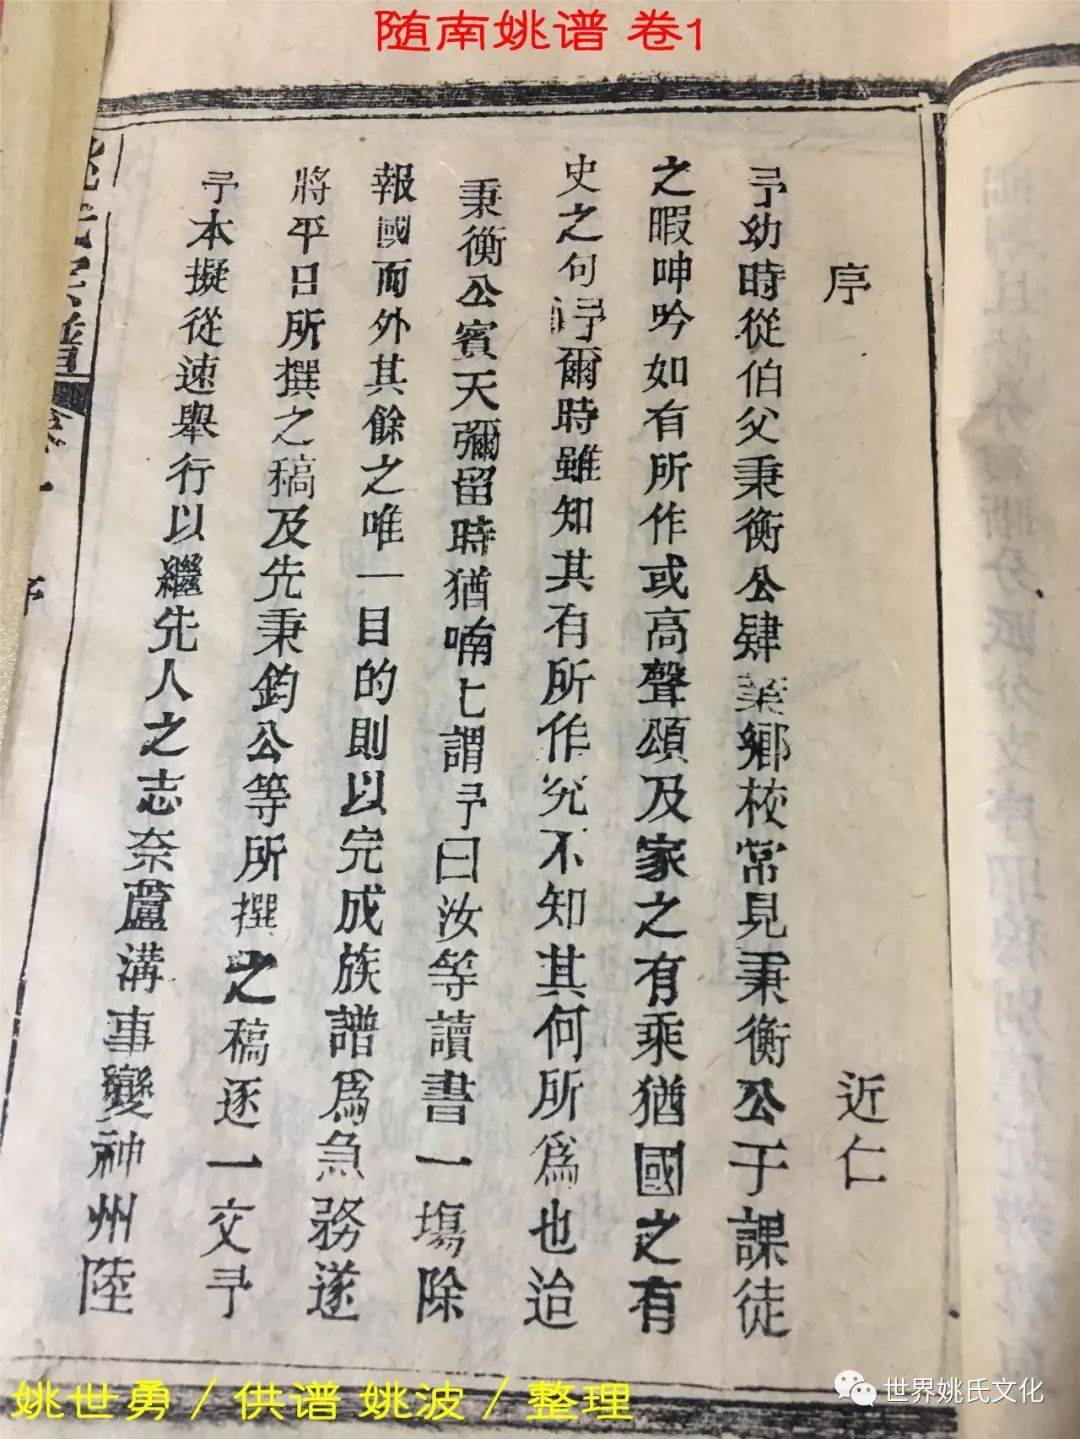 随南姚谱 卷1
序 近仁
予幼時從伯父秉衡公肄業鄉校常見秉衡公于課徒
之暇呻吟如有所作或高聲頌及家之有乘猶國之有
史之句予爾時雖知其有所作究不知其何所為也迨
秉衡公賓天彌留時猶喃匕謂予曰汝等讀書一塲除
報國而外其餘之唯一目的則以完成族譜爲急務遂
將平日所撰之稿及先秉鈞公等所撰之稿逐一交予
予本擬從速舉行以繼先人之志奈蘆溝事變神州陸
姚氏宗譜 卷一 序
姚世勇／供谱 姚波／整理
世界姚氏文化